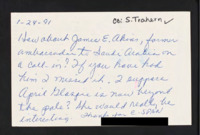 1-29-91
cc: S. Traharn ✓
How about James E. Akins, former
ambassador to Saudi Arabia on
a call in? If you have had
him I missed it. I suppose
April Glaspie is now beyond
the pale? She would really be
interesting. Thank you C-SPAN